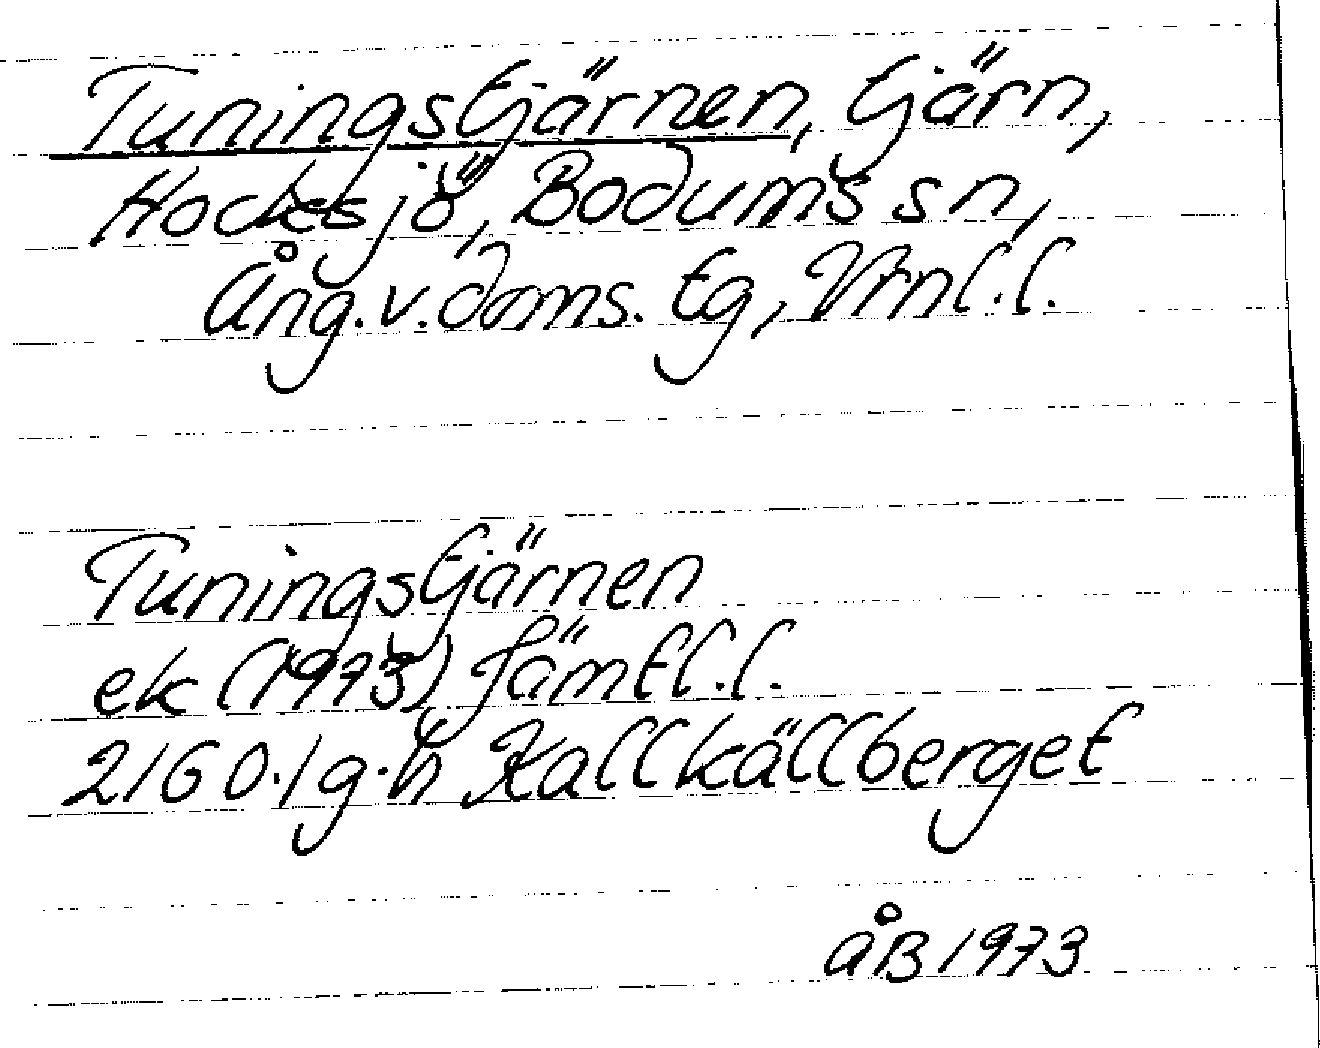 Tuningstjärnen, tjärn,
Hocksjö, Bodums sn,
Ång. v. doms. tg, Vrnl. l.
Tuningstjärnen
ek (1973) Jämtl. l.
21G 0-1 g-h Kallkällberget
ÅB 1973